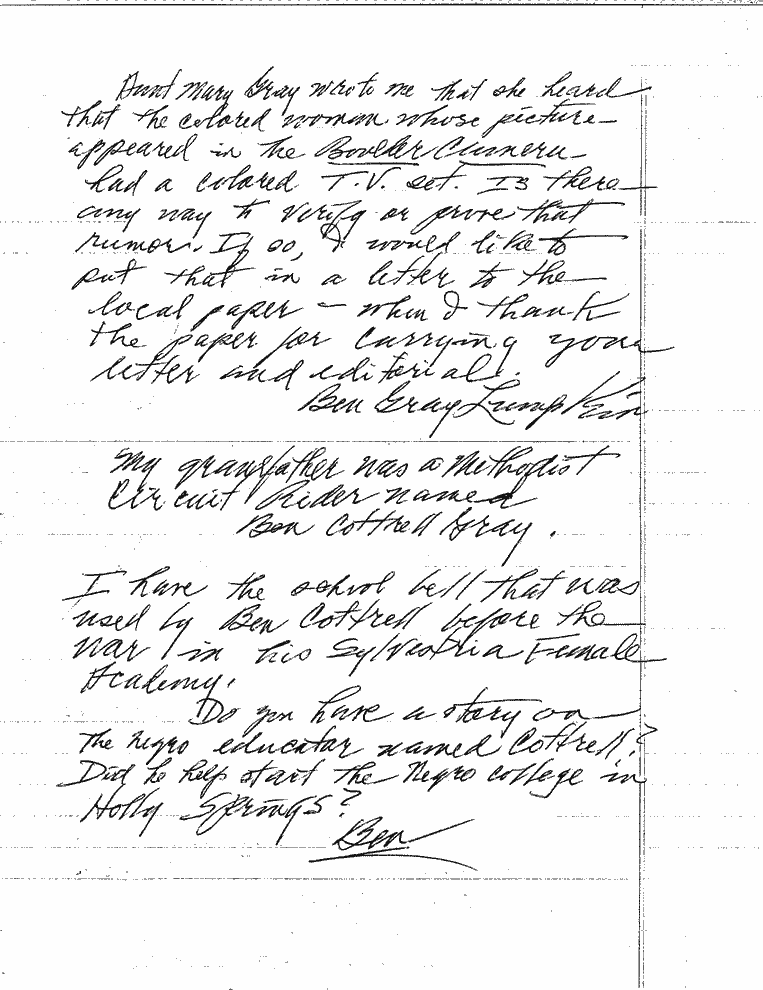 Aunt Mary Gray wrote me that she heard
that the colored woman whose picture
appeared in the Boulder Camera
had a colored T.V. set. Is there
any way to verify or prove that
rumor. If so, I would like to
put that in a letter to the
local paper – when I thank
the paper for carrying your
letter and editorial.
Ben Gray Lumpkin
My grandfather was a Methodist
Circuit Rider named
Ben Cottrell Gray.
I have the school bell that was
used by Ben Cottrell before the
war in his Sylvestria Female
Academy.
Do you have a story on
the Negro educator named Cottrell?
Did he help start the Negro college in
Holly Springs?
Ben